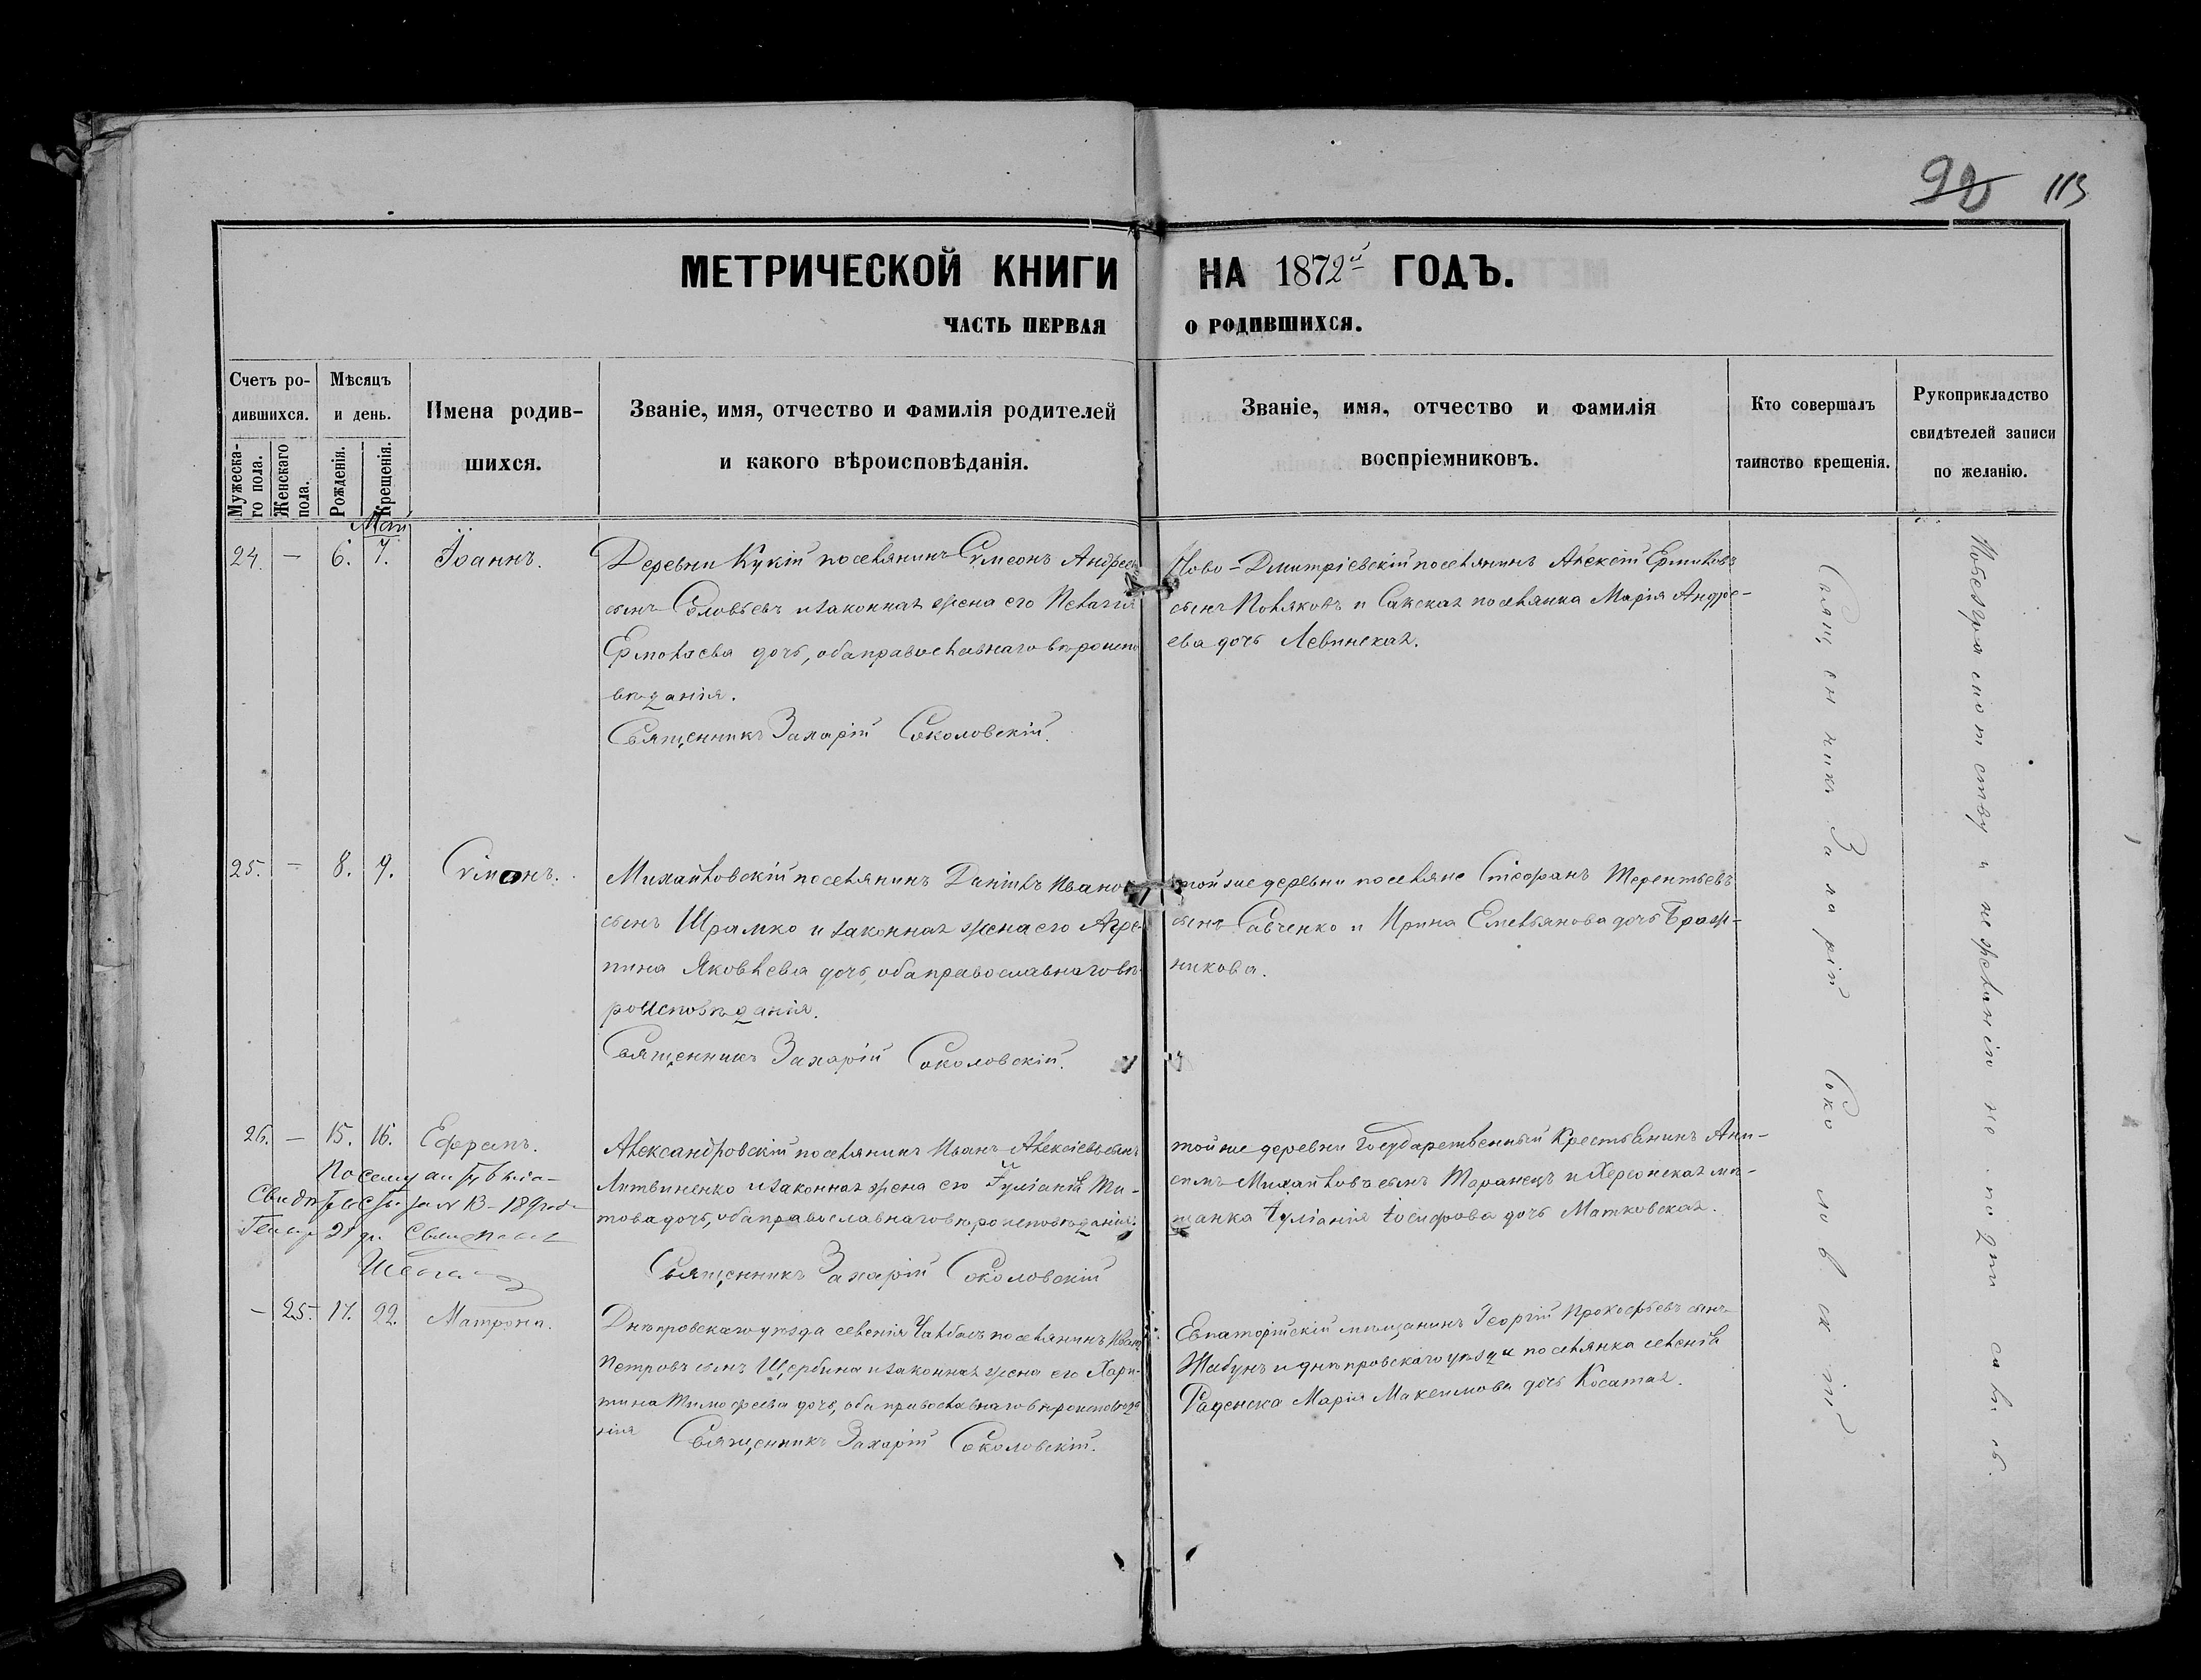 92 113
МЕТРИЧЕСКОЙ КНИГИ НА 1872й ГОДЪ.
ЧАСТЬ ПЕРВАЯ О РОДИВШИХСЯ.
Счетъ ро-
дившихся.
Мужеска-
го пола.
Женскаго
пола.
Мѣсяцъ
и день.
Рожденія.
Крещенія.
Имена родив-
шихся.
Званіе, имя, отчество и фамилія родителей
и какого вѣроисповѣданія.
Званіе, имя, отчество и фамилія
воспріемниковъ.
Кто совершалъ
таинство крещенія.
Рукоприкладство
свидѣтелей записи
по желанію.
Май
24. — 6. 7. Іоаннъ.
Деревни Кукій поселянинъ Сѵмеонъ Андреевъ
сынъ Соловьевъ и законная жена его Пелагія
Ермолаева дочь, оба православнаго вѣроиспо
вѣданія.
Священникъ Захарій Соколовскій.
Ново-Дмитріевскій поселянинъ Алексій Ермиловъ
сынъ Поляковъ и Сакская поселянка Марія Андре-
ева дочь Левинская.
25. — 8. 9. Сѵмонъ.
Михайловскій поселянинъ Даніилъ Иванов
сынъ Шрамко и законная жена его Агре-
пина Яковлева дочь, оба православнаго вѣ-
роисповѣданія.
Священникъ Захарій Соколовскій.
той же деревни поселяне Стефанъ Терентьевъ
сынъ Савченко и Ирина Емельянова дочь Браж-
никова.
26. — 15. 16. Ефремъ.
По сему
Свидѣ № 13 - 189
21
Александровскій поселянинъ Иванъ Алексіевъ сынъ
Литвиненко и законная жена его Іуліанія Ти-
това дочь, оба православнаго вѣроисповѣданія.
Священникъ Захарій Соколовскій
той же деревни Государственный Крестьянинъ Ани-
симъ Михайловъ сынъ Таранецъ и Херсонская мѣ-
щанка Іуліанія Іосифова дочь Матковская.
— 25. 17. 22. Матрона.
Днѣпровскаго уѣзда селенія Чалбасъ поселянинъ Иванъ
Петровъ сынъ Щербина и законная жена его Хари-
тина Тимофеева дочь, оба православнаго вѣроисповѣда
нія
Священникъ Захарій Соколовскій.
Евпаторійскій мѣщанинъ Георгій Прокофьевъ сынъ
Жабунъ и днѣпровскаго уѣзда поселянка селенія
Раденска Марія Максимова дочь Косатая.
Священникъ Захарій Соколовскій